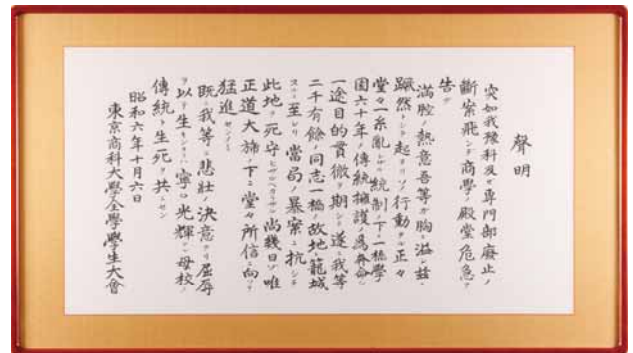 聲明
突如我豫科及ビ専門部廢止ノ
斷案飛ンデ商學ノ殿堂危急ヲ
告グ
滿腔ノ熱意吾等ガ胸ニ溢レ茲ニ
蹶然トシテ起テリソノ行動タル正々
堂々一糸亂レザル統制ノ下一橋學
園六十年ノ傳統擁護ノ爲奔命シ
一途目的貫徹ヲ期シテ遂ニ我等
二千有餘ノ同志一橋ノ故地ニ籠城
スルニ至レリ當局ノ暴案ニ抗シテ
此地ヲ死守セザルベカラザル尚幾日ゾ唯
正道大旆ノ下ニ堂々所信ニ向ツテ
猛進センノミ
既ニ我等ニ悲壮ノ決意アリ屈辱
ヲ以テ生キンヨリハ寧ロ光輝アル母校ノ
傳統ト生死ヲ共ニセン
昭和六年十月六日
東京商科大學全學學生大會